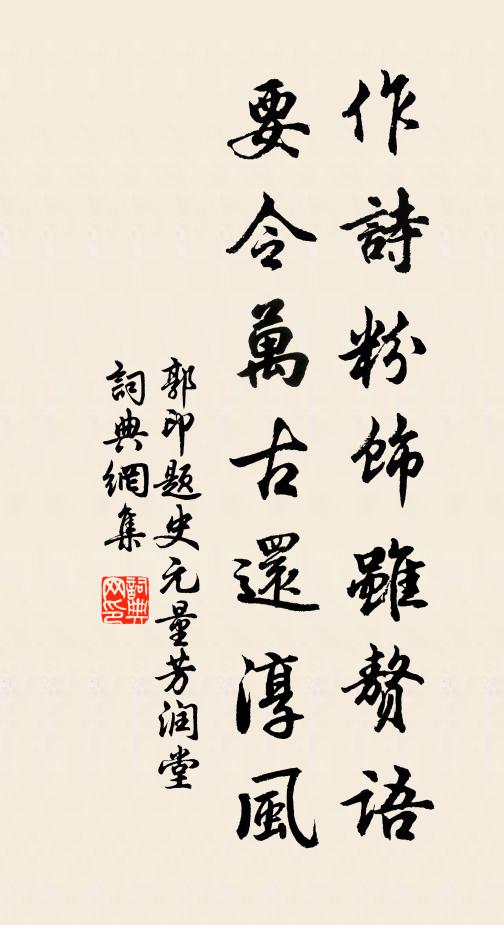 作詩粉飾雖贅語
要令萬古還淳風
郭印題史元量芳润堂
詞典網集
詞典网印